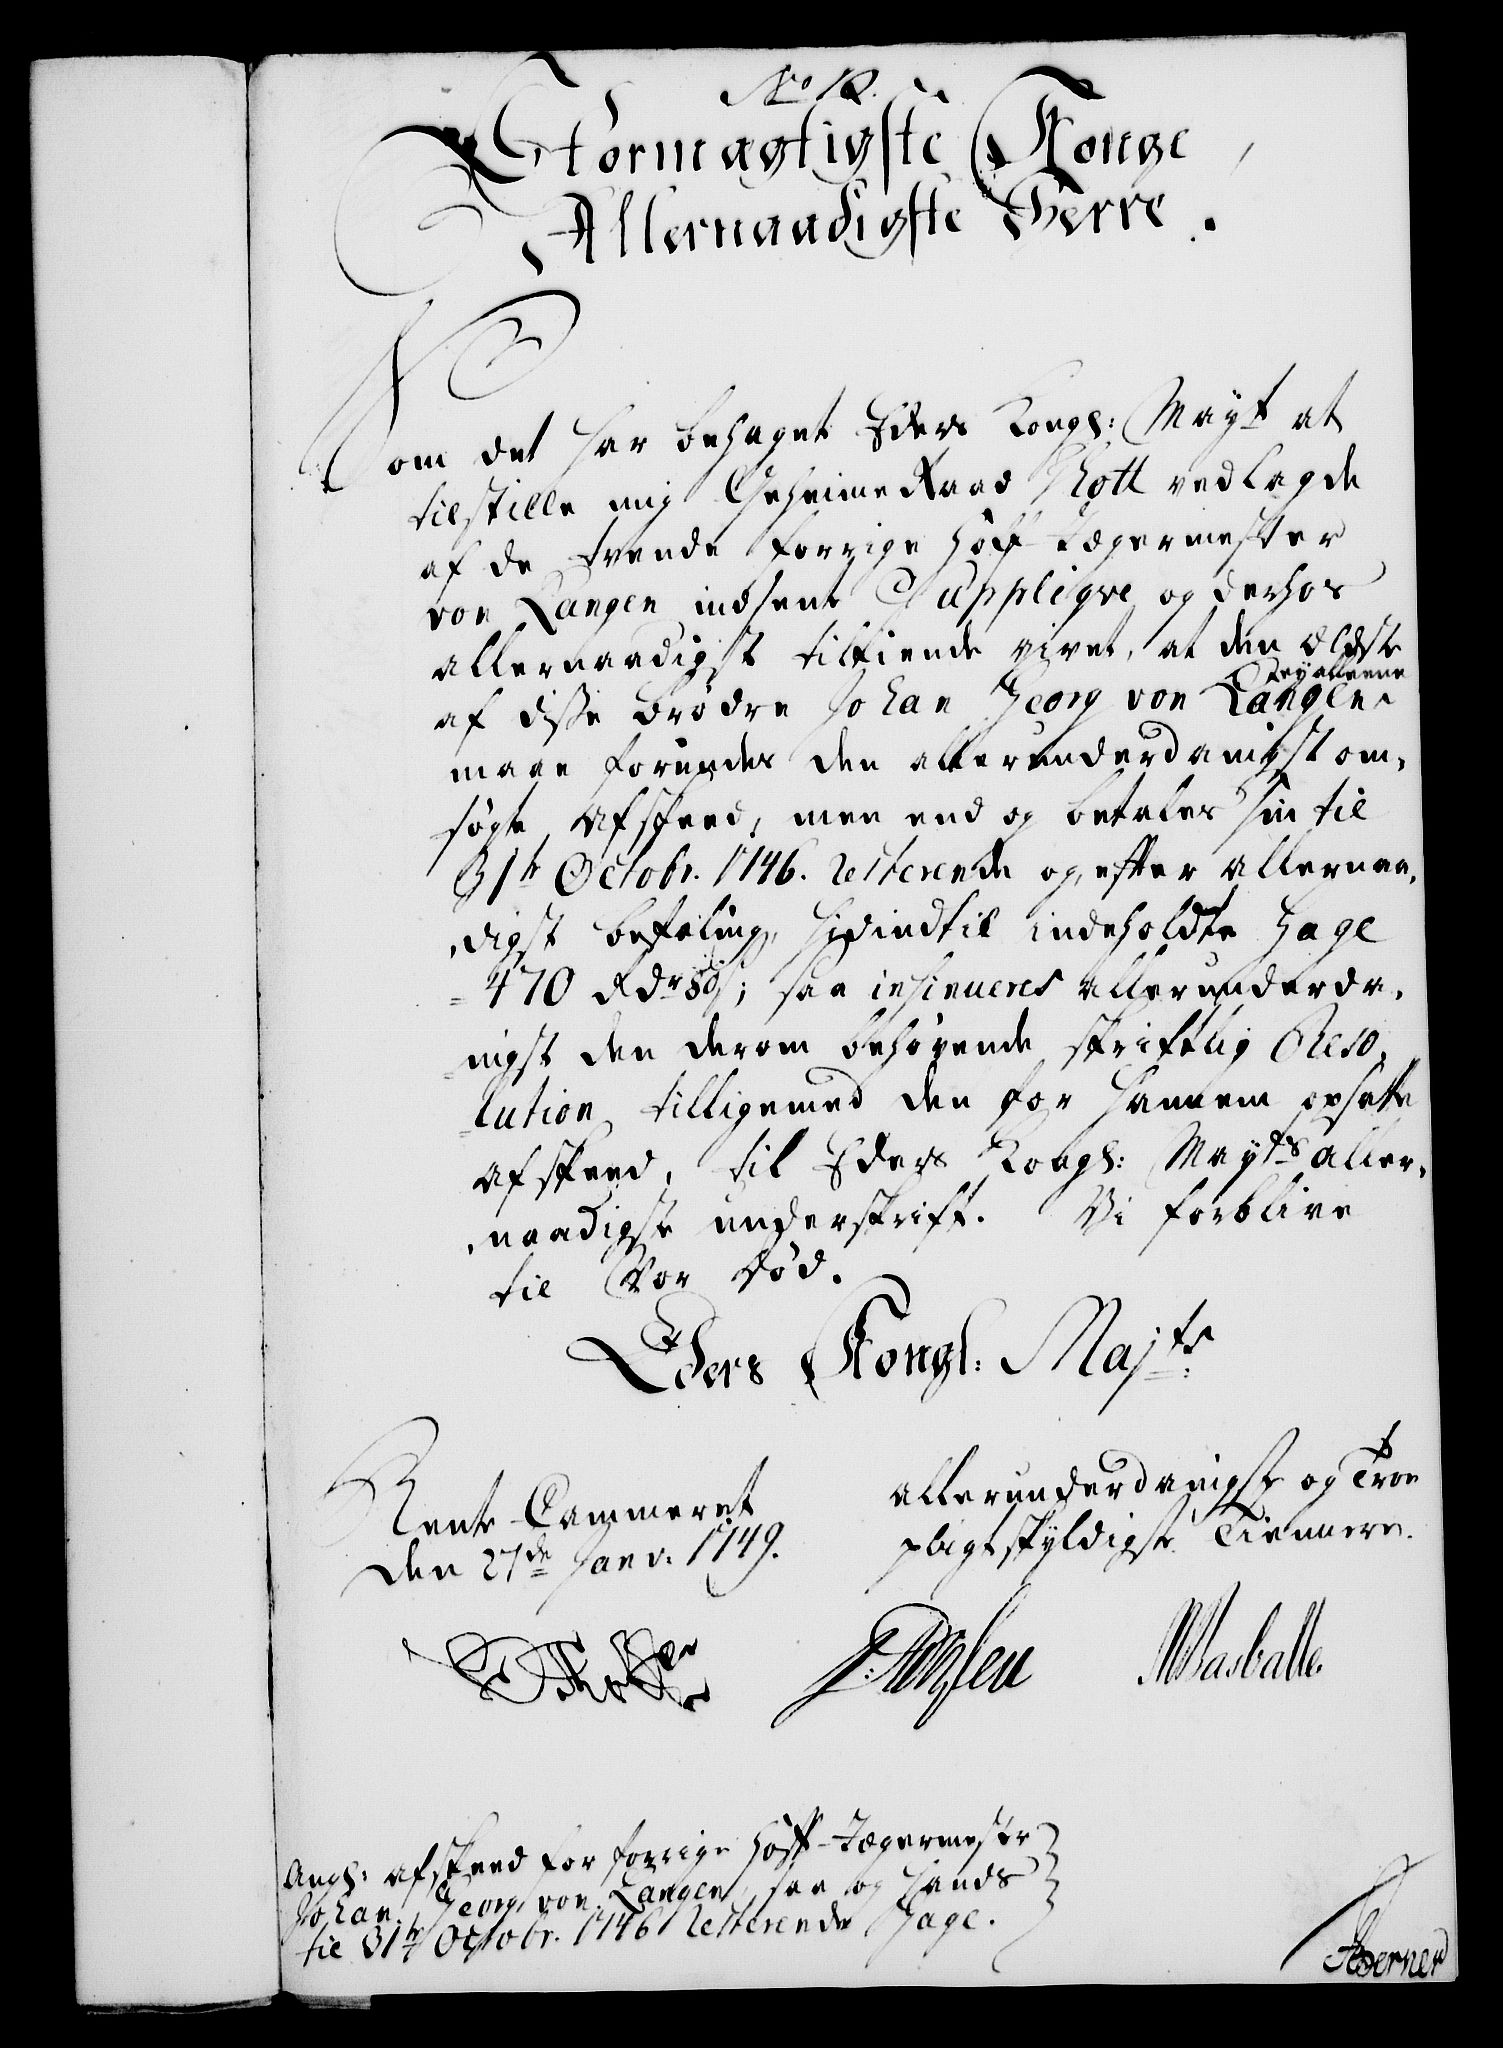 No 12.
Stormægtigste Konge,
Allernaadigste Herre.
Som det har behaget Eders Kongl: Mayt at
tilstille mig GeheimeRaad Thott vedlagde
af de tvende forrige Hoff-Jægermester
von Langen indsent Suppliqve og derhos
allernaadigst tilkiende givet, at den Eldste
af disse Brødre Johan Georg von Langen
ey alleene
maae forundes den allerunderdanigst om-
søgte Afskeed, men end og betales sin til
31te Octobr. 1746. resterende og, efter allernaa-
digst befaling, hidindtil indeholdte Gage
470 Rdr 80 s; saa insinueres allerunderda-
nigst den derom behøvende skriftlig Reso-
lution, tilligemed den for hannem opsatte
Afskeed, til Eders Kongl: Mayts aller-
naadigste underskrift. Vi forblive
til Vor Død.
Eders Kongl: Majts:
Rente-Cammeret
den 27de Janv: 1749.
allerunderdanigst og Troe
pligtskyldigste Tiennere.
Thott
Wasballe.
Angl: Afskeed for forrige Hoff-Jægermester
Johan Georg von Langen, saa og Hands
til 31te Octobr. 1746 resterende Gage.